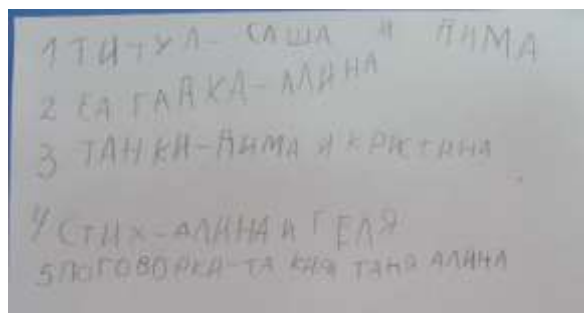 1 ТИТУЛ- САША И ДИМА
2 ЗАГАДКА-АЛИНА
3 ТАНКИ-ДИМА И КРИСТИНА
4 СТИХ-АЛИНА И ГЕЛЯ
5 ПОГОВОРКИ-ТА ТАНЯ АЛИНА